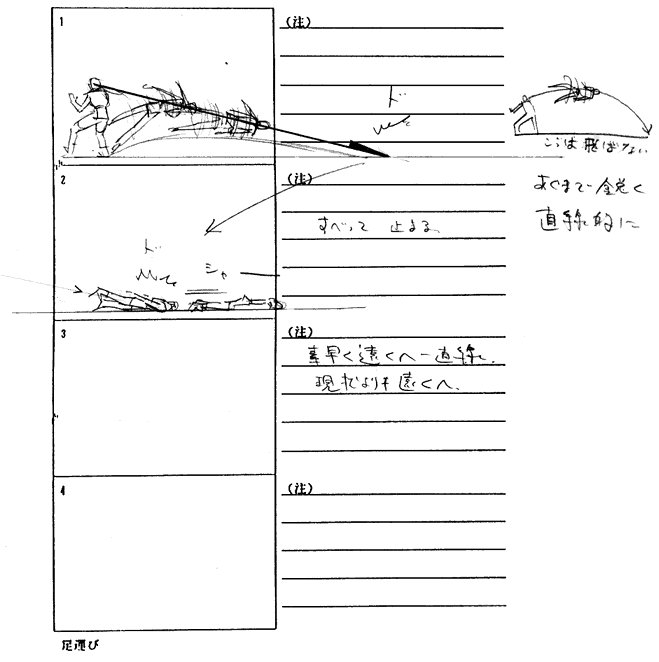 1
(注)
ド
ここは飛ばない
あくまで鋭く
直線的に
2
(注)
すべって 止まる。
ド
シャー
3
(注)
素早く遠くへ一直線。
現状よりも遠くへ。
4
(注)
足運び